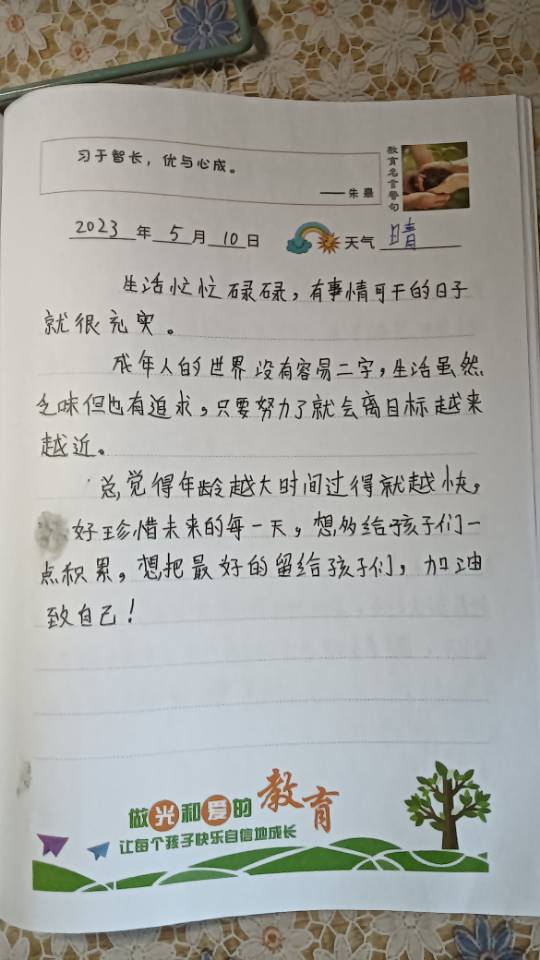 习于智长，优与心成。
——朱熹
教育名言警句
2023年5月10日 天气 晴
生活忙忙碌碌，有事情可干的日子
就很充实。
成年人的世界没有容易二字，生活虽然
乏味但也有追求，只要努力了就会离目标越来
越近。
总觉得年龄越大时间过得就越快，
好珍惜未来的每一天，想多给孩子们一
点积累，想把最好的留给孩子们，加油
致自己！
做光和爱的教育
让每个孩子快乐自信地成长